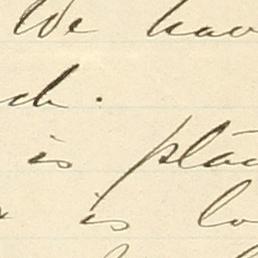 We hav
ch.
is plac
is lo